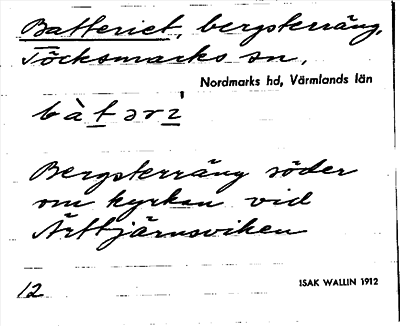 Batteriet, bergsterräng,
Töcksmarks sn,
Nordmarks hd, Värmlands län
bàtərì
Bergsterräng söder
om kyrkan vid
Ärttjärnsviken
12
ISAK WALLIN 1912